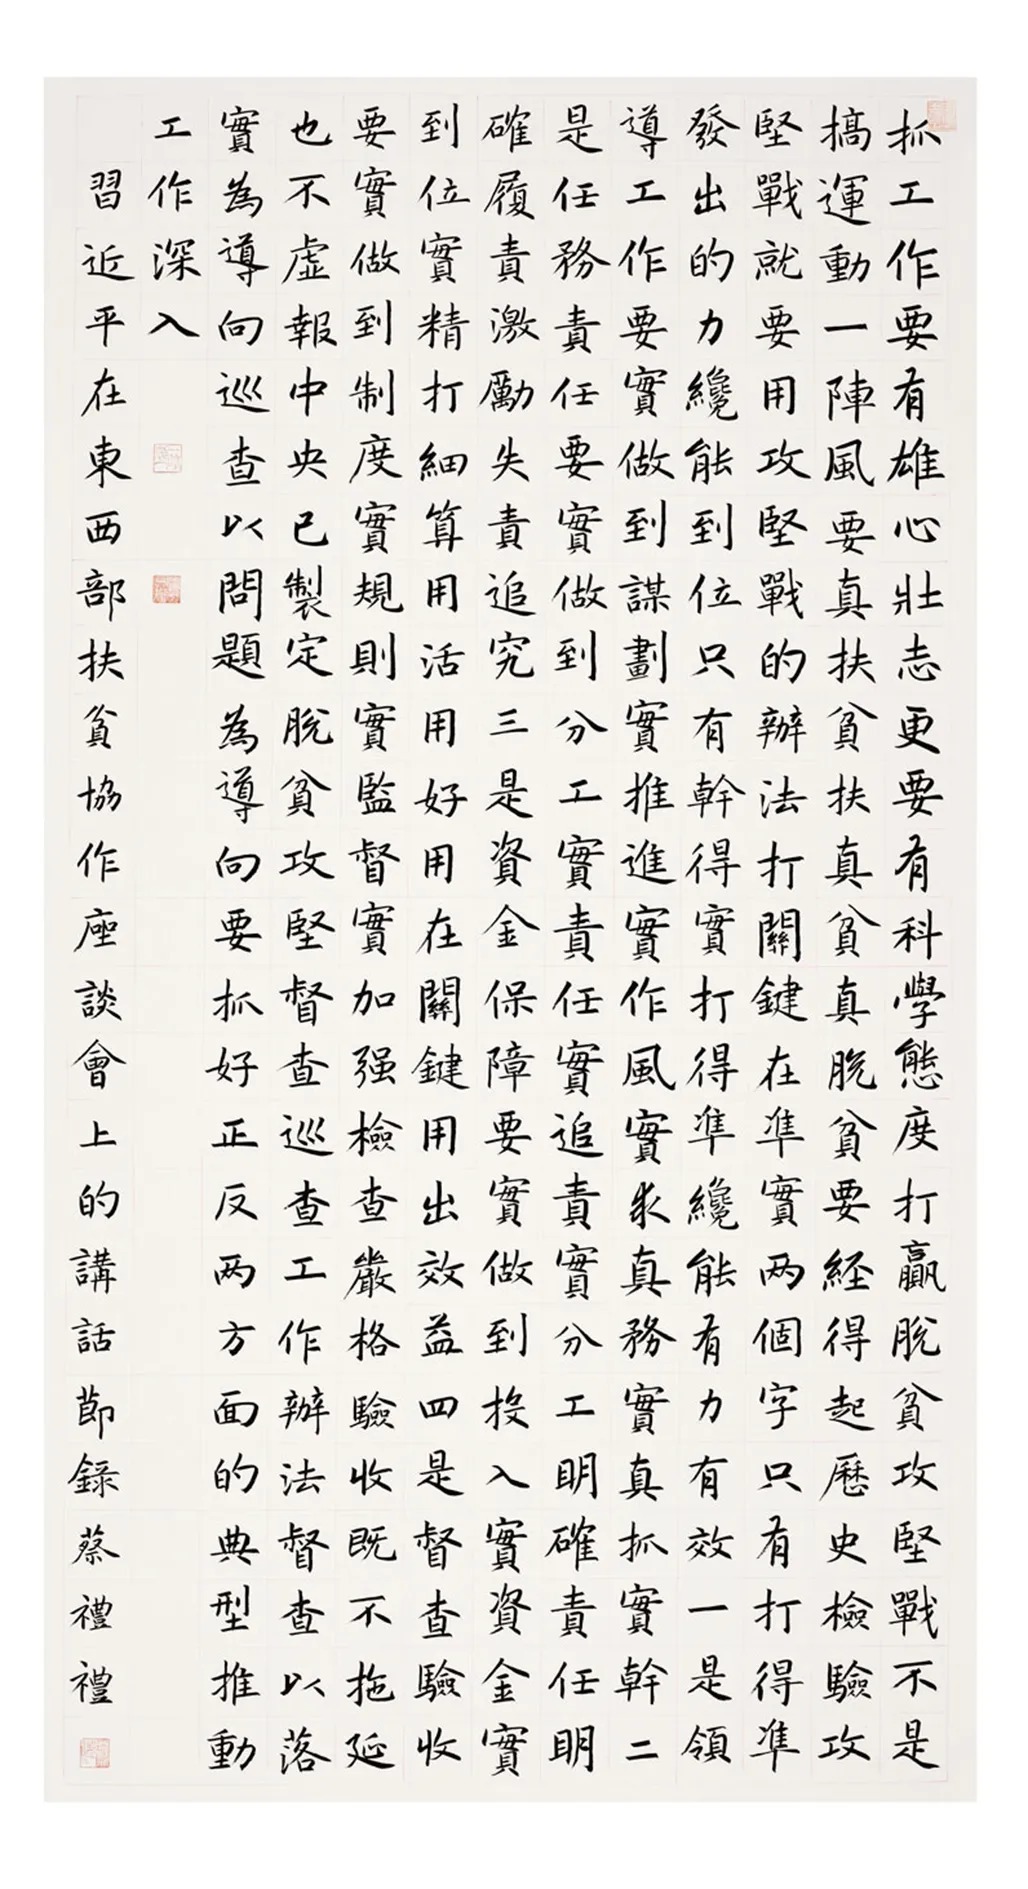 抓工作要有雄心壯志更要有科學態度打贏脫貧攻堅戰不是
搞運動一陣風要真扶貧扶真貧真脫貧要經得起歷史檢驗攻
堅戰就要用攻堅戰的辦法打關鍵在準實两個字只有打得準
發出的力纔能到位只有幹得實打得準纔能有力有效一是領
導工作要實做到謀劃實推進實作風實求真務實真抓實幹二
是任務責任要實做到分工實責任實追責實分工明確責任明
確履責激勵失責追究三是資金保障要實做到投入實資金實
到位實精打細算用活用好用在關鍵用出效益四是督查驗收
要實做到制度實規則實監督實加强檢查嚴格驗收既不拖延
也不虛報中央已製定脫貧攻堅督查巡查工作辦法督查以落
實為導向巡查以問題為導向要抓好正反两方面的典型推動
工作深入
習近平在東西部扶貧協作座談會上的講話節錄蔡禮禮